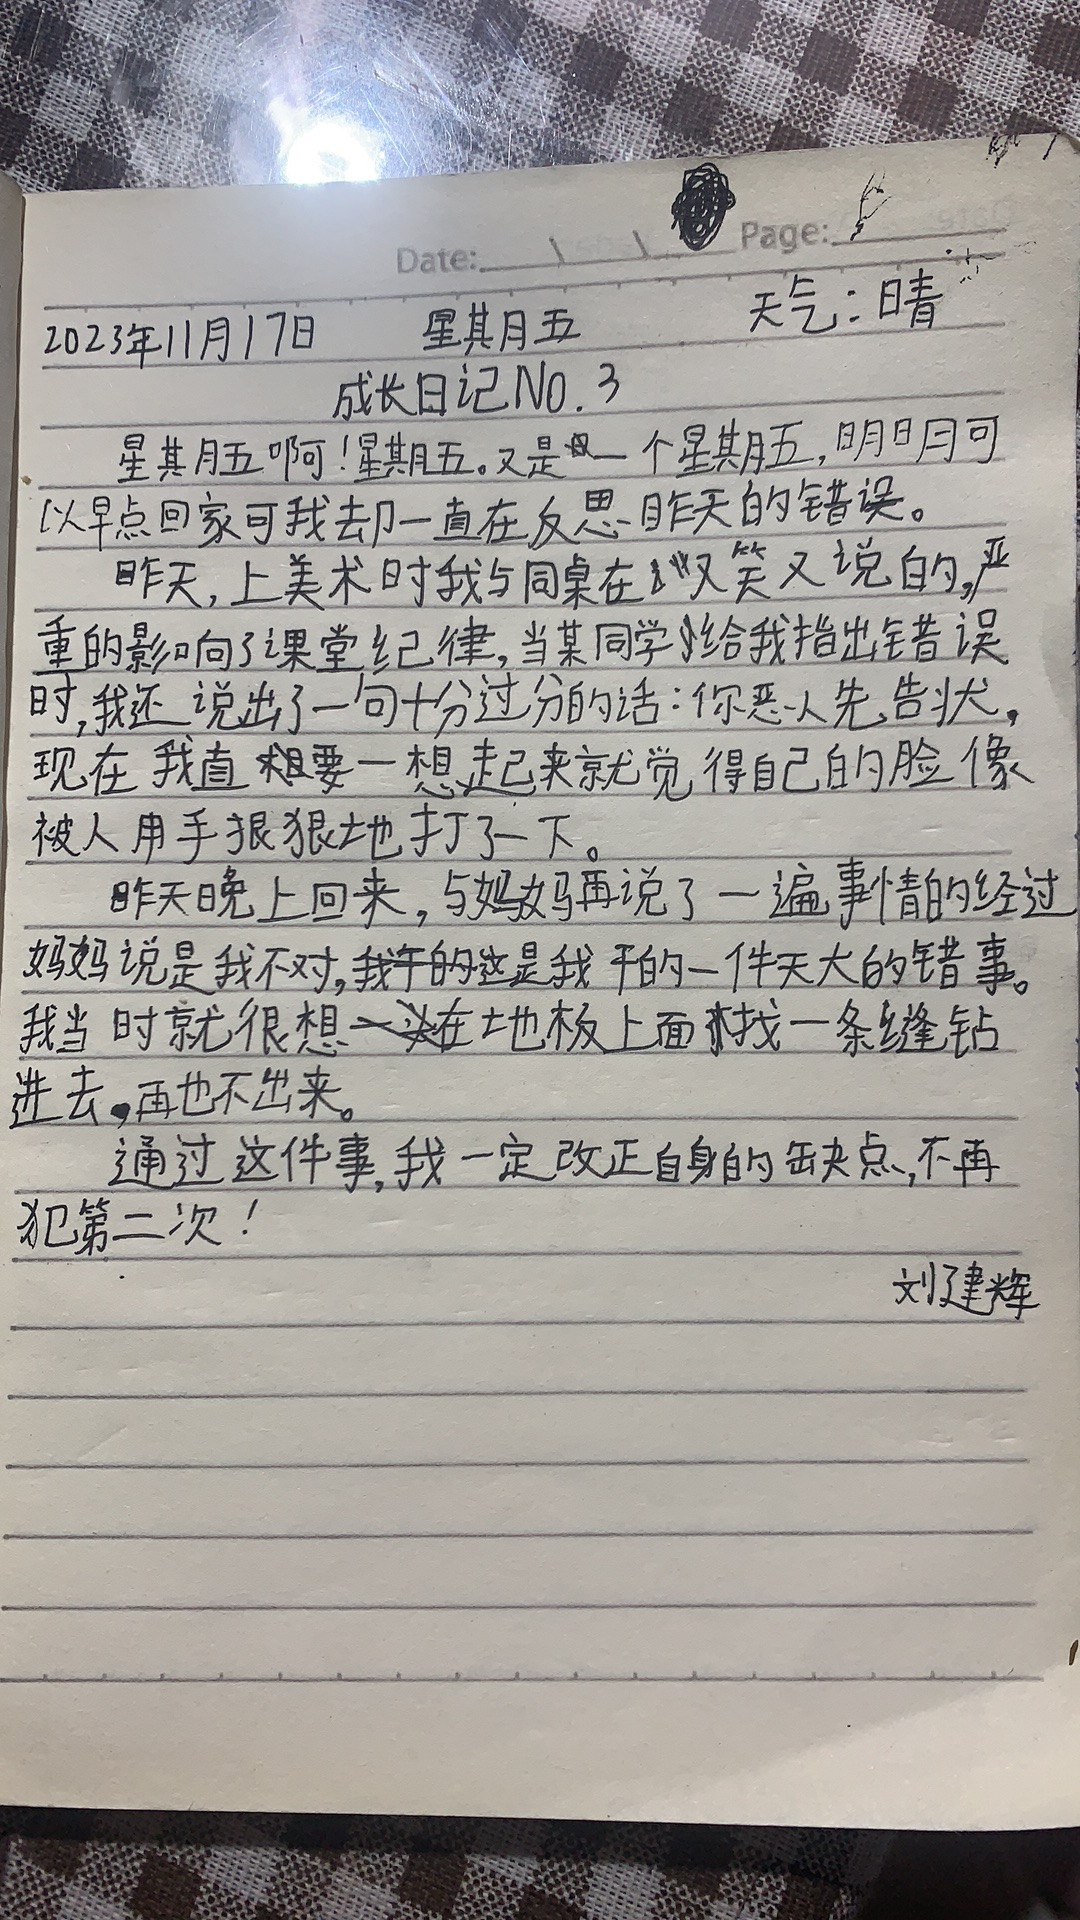 Date: Page:
2023年11月17日 星期五 天气:晴
成长日记No.3
星期五啊!星期五。又是一个星期五,明明可
以早点回家可我却一直在反思昨天的错误。
昨天,上美术时我与同桌在又笑又说的,严
重的影响了课堂纪律,当某同学给我指出错误
时,我还说出了一句十分过分的话:你恶人先告状,
现在我直要一想起来就觉得自己的脸像
被人用手狠狠地打了一下。
昨天晚上回来,与妈妈再说了一遍事情的经过
妈妈说是我不对,这是我干的一件天大的错事。
我当时就很想在地板上面找一条缝钻
进去,再也不出来。
通过这件事,我一定改正自身的缺点,不再
犯第二次!
刘建辉